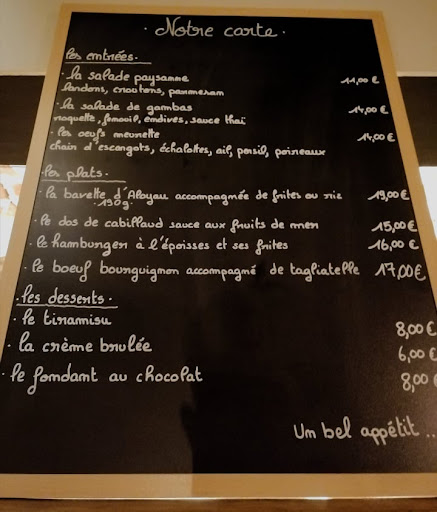 · Notre carte ·
les entrées ·
· la salade paysanne 11,00 €
lardons, croutons, parmesan
· la salade de gambas 14,00 €
roquette, fenouil, endives, sauce thaï
· les oeufs meurette 14,00 €
chair d'escargots, échalottes, ail, persil, poireaux
les plats ·
· la bavette d'Aloyau accompagnée de frites ou riz 19,00 €
· 190g ·
· le dos de cabillaud sauce aux fruits de mer 15,00 €
· le hamburger à l'époisses et ses frites 16,00 €
· le boeuf bourguignon accompagné de tagliatelle 17,00 €
· les desserts ·
· le tiramisu 8,00 €
· la crème brulée 6,00 €
· le fondant au chocolat 8,00 €
Un bel appétit ..